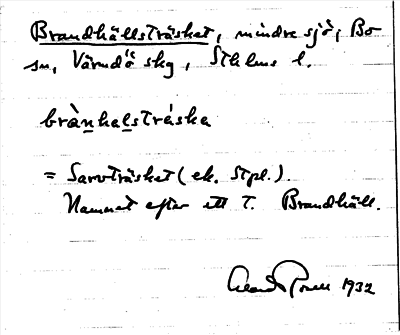 Brandhällsträsket, mindre sjö, Bo
sn, Värmdö skg, Sthlms l.
brànhalstráska
= Sarvträsket (ek. Stpl.).
Namnet efter ett T. Brandhäll.
1932